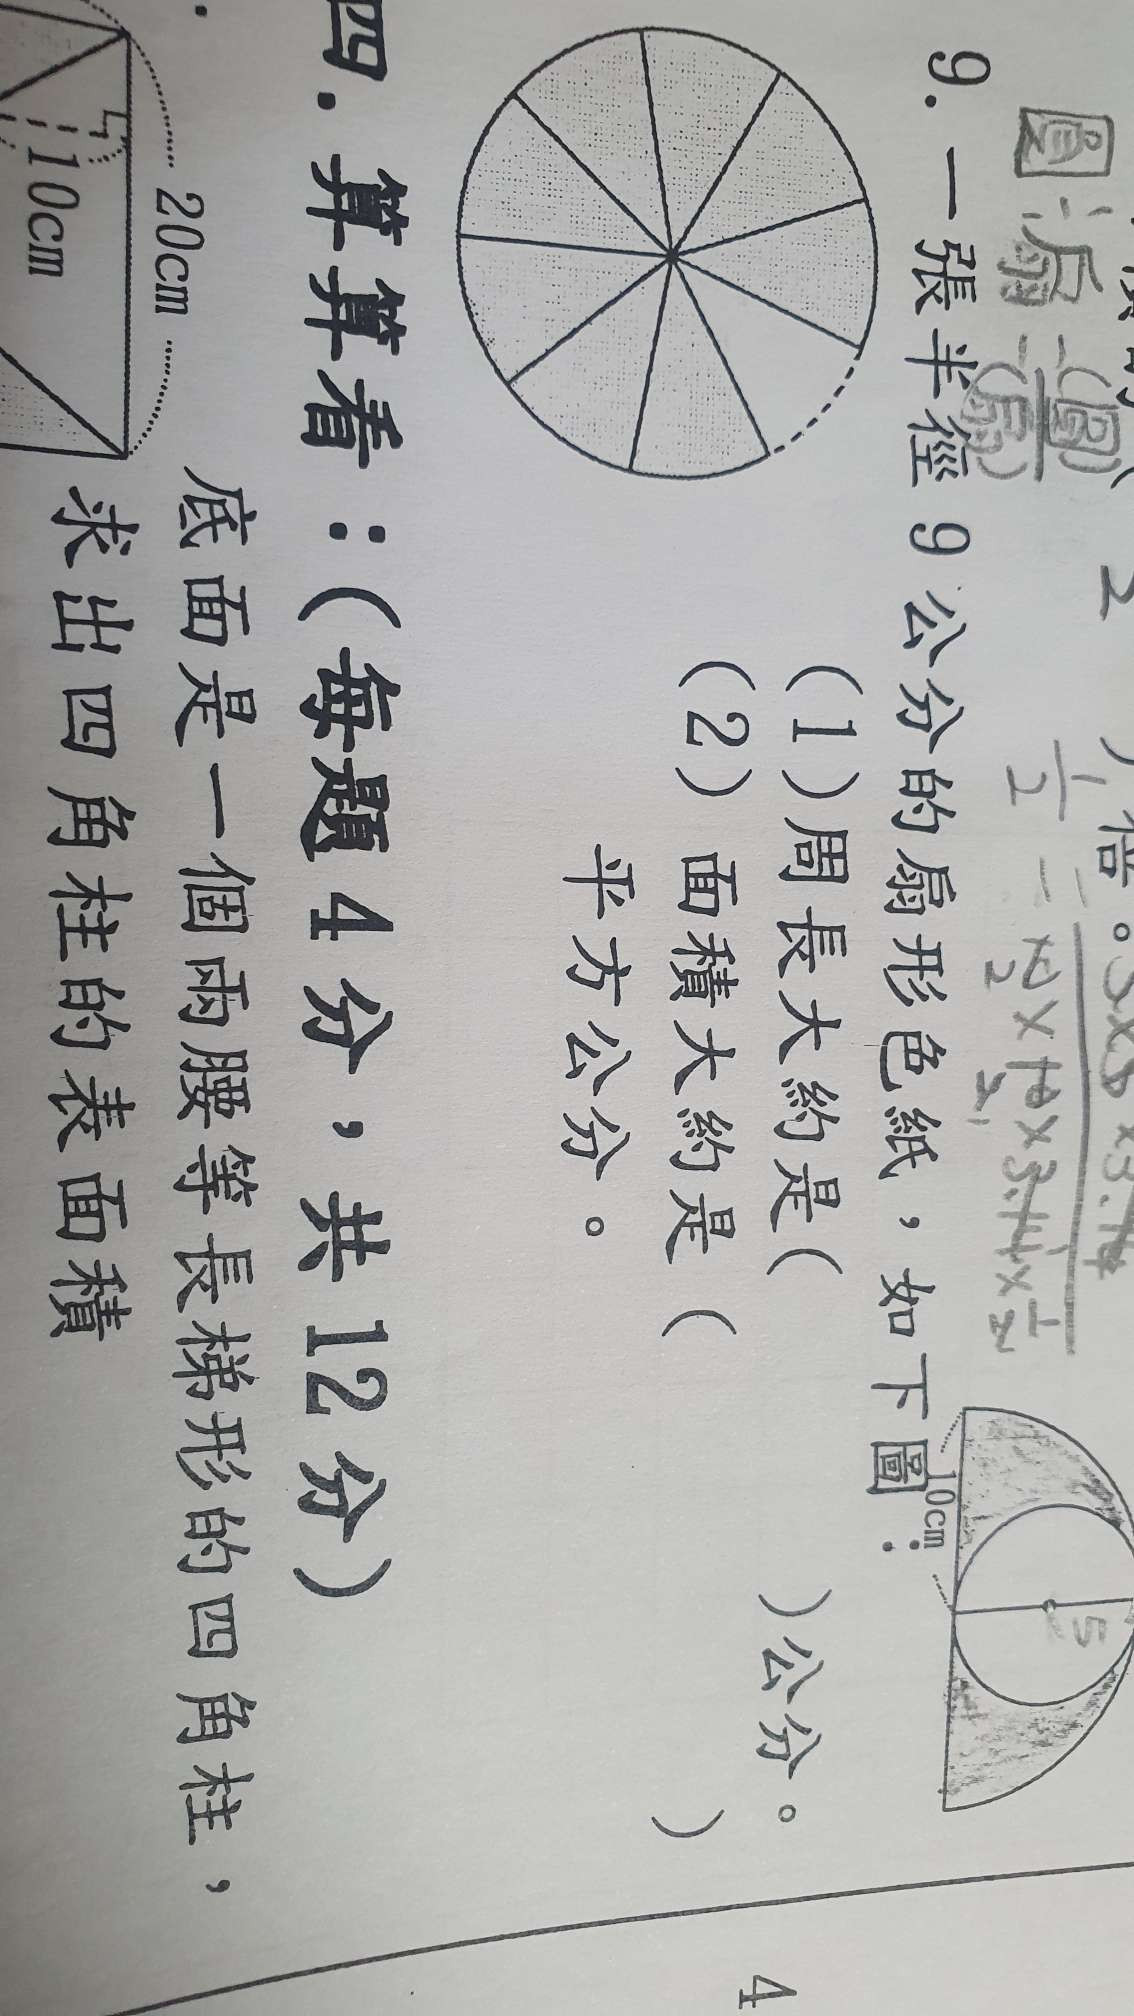 2
)倍。
圓:扇
1/2
9. 一張半徑9公分的扇形色紙，如下圖：
10cm
5
(1)周長大約是( )公分。
(2)面積大約是( )
平方公分。
四.算算看：(每題4分，共12分)
底面是一個兩腰等長梯形的四角柱，
求出四角柱的表面積
20cm
10cm
4